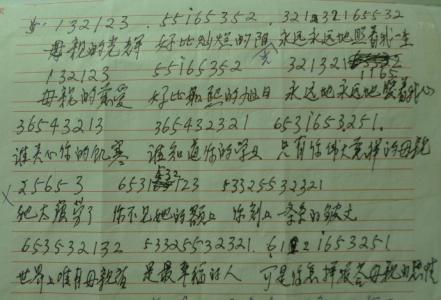 132123 . 55165352 . 321 32165532
母親的光辉 好比灿烂的阳光 永远永远地照着我一生
132123 55165352 321321
母親的慈爱 好比温熙的旭日 永远地永远地 照着我心
36543213 365432321 6531653251.
谁关心你的饥寒 谁知道你的学业 只有你伟大慈祥的母親
X 25653 6531 23 53325532321
她太疲劳了 你不见她的额上 你刻上一条条的皱文
6535532132 53325532321. 61 21653251
世界上唯有母親 是最幸福的人 可是你怎样报答母親的恩情